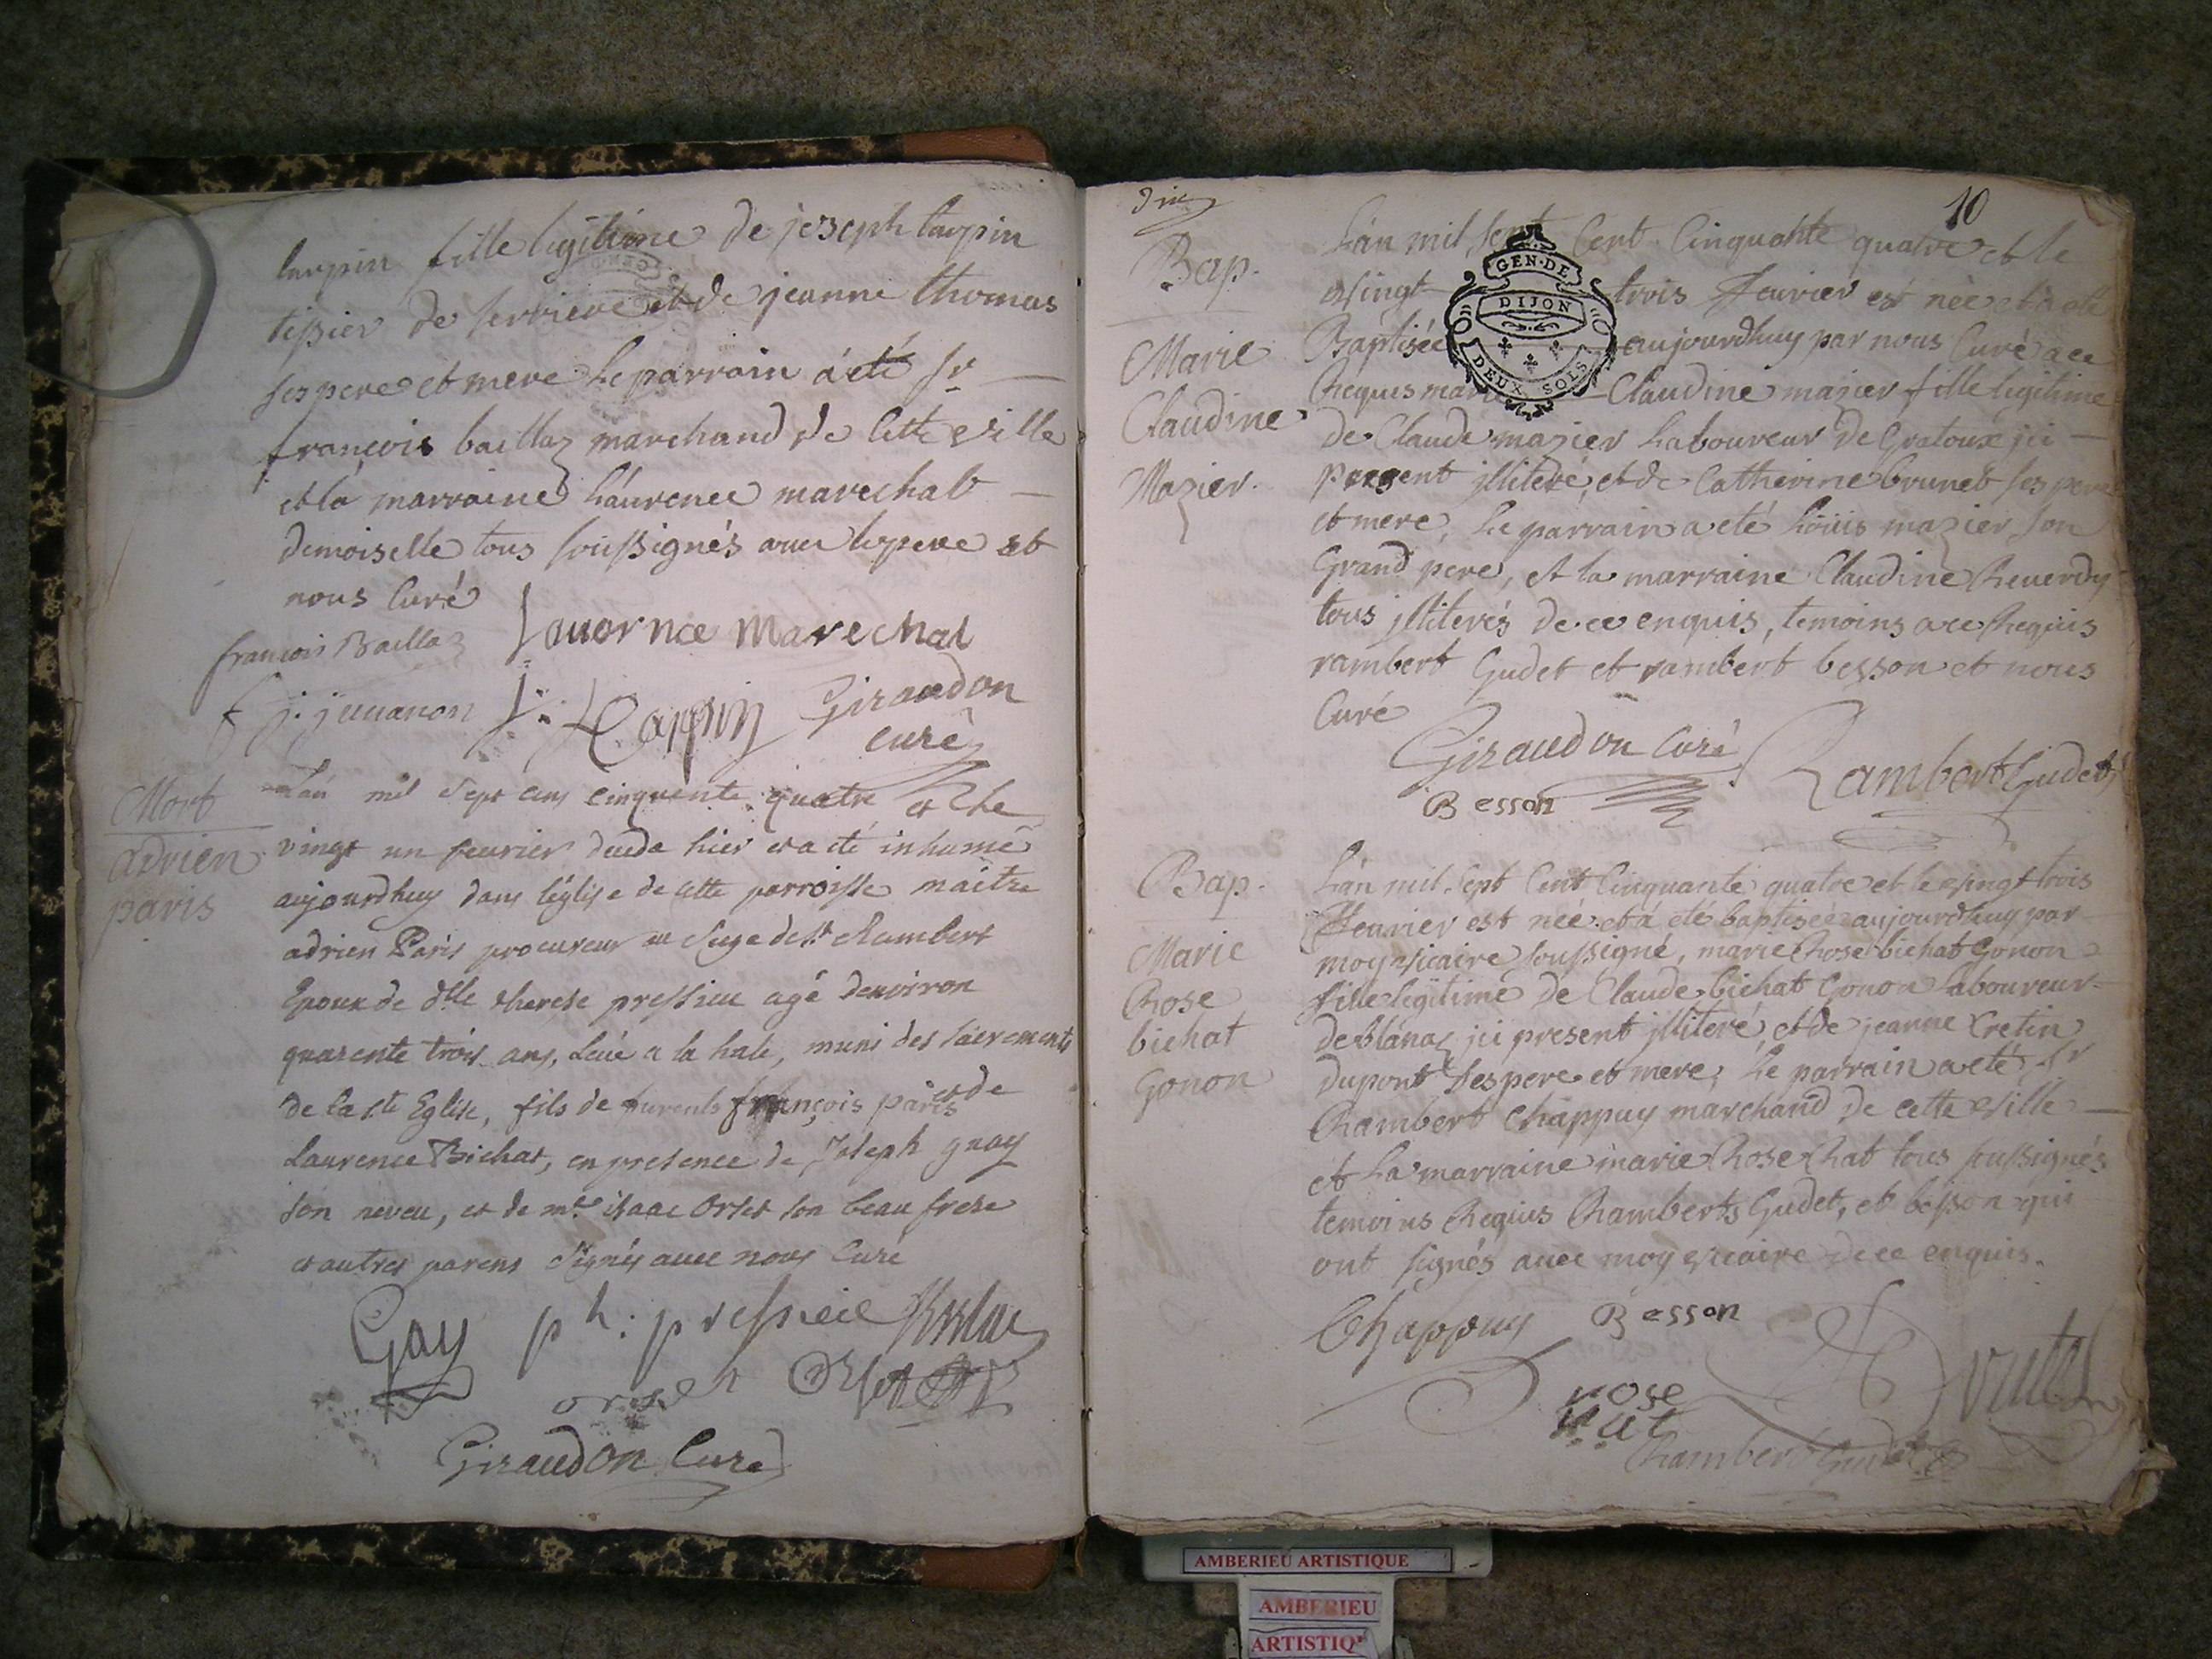 lespin fille legitime de joseph laupin
tissier de serriere et de jeanne thomas
ses pere et mere le parrain á été sr
françois baillaz marchand de cette ville
et la marraine Láurence marechalt
demoiselle tous soussignés avec le pere et
nous Curé
françois Baillaz
Lauornce Marechal
j. juuanon
Giraudon
curé
Mort
adrien
paris
L'an mil Sept cens cinquante quatre et le
vingt un feurier decede hier et a été inhumé
aujourdhuy dans l'église de cette parroisse maitre
adrien Paris procureur au siege de st Rambert
Epoux de dlle therese pressieu agé denviron
quarente trois ans, Leüé a la hale, muni des sacrements
de la ste Eglise, fils de françois paris et de
Laurence Bichat, en presence de Joseph guay
son neveu, et de mre isaac Orset son beau frere
et autres parens Signés avec nous Curé
Gay ph: pressieu
orset Orset
Giraudon Curé
dix
10
GEN·DE
DIJON
DEUX SOLS
Bap.
Marie
Claudine
Mazier.
L'án mil sept Cent Cinquante quatre et le
vingt trois Feurier est née et à eté
Baptisée aujourdhuy par nous Curé a ce
Requis marie Claudine mazier fille legitime
de Claude mazier Laboureur de Gratoux jci
present jlliteré, et de Catherine brunet ses pere
et mere, Le parrain a eté Loüis mazier son
Grand pere, et la marraine Claudine Reuerdy
tous jlliterés de ce enquis, temoins a ce Requis
rambert Gudet et rambert besson et nous
Curé
Giraudon Curé Rambert Gudet
Besson
Bap.
Marie
Rose
bichat
Gonon
L'án mil Sept Cent Cinquante quatre et le vingt trois
Feurier est née et á eté baptisée aujourdhuy par
moy vicaire soussigné, marie Rose bichat Gonon
fille legitime de Claude bichat Gonon Laboureur
de blánaz jci present jlliteré, et de jeanne Cretin
dupont ses pere et mere; Le parrain a eté Sr
Rambert Chappuy marchand de cette ville
et La marraine marie Rose Rat tous soussignés
temoins Requis Ramberts Gudet, et besson qui
ont signés avec moy vicaire de ce enquis.
Chappuy Besson
rose
rat
Rambert Gudet
AMBERIEU ARTISTIQUE
AMBERIEU
ARTISTIQ